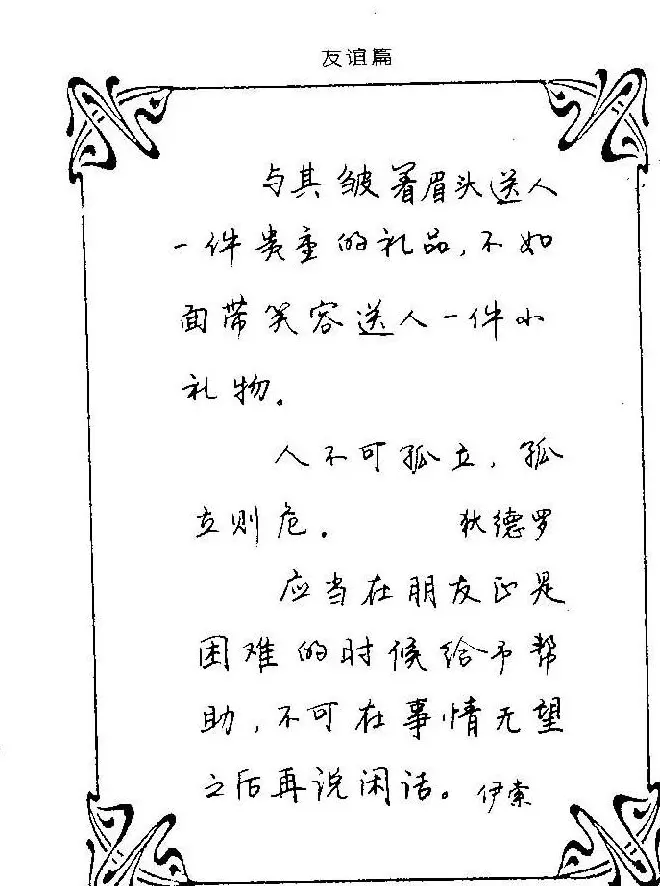 友谊篇
与其皱着眉头送人
一件贵重的礼品,不如
面带笑容送人一件小
礼物。
人不可孤立,孤
立则危。 狄德罗
应当在朋友正是
困难的时候给予帮
助,不可在事情无望
之后再说闲话。 伊索